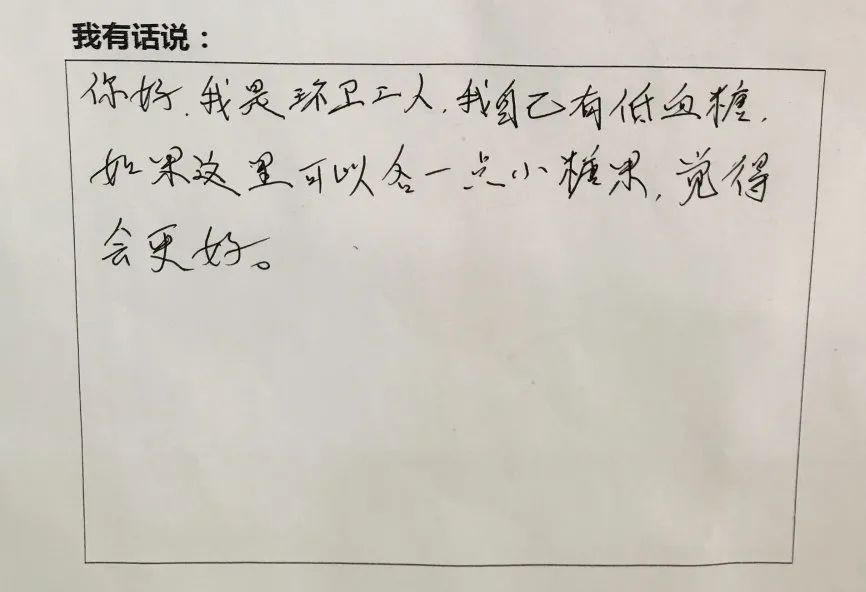 我有话说：
你好.我是环卫工人.我自己有低血糖.
如果这里可以备一点小糖果,觉得
会更好。